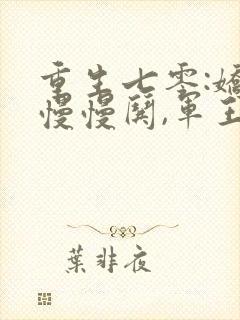 重生七零:嬌
慢慢鬨,軍王
葉非夜